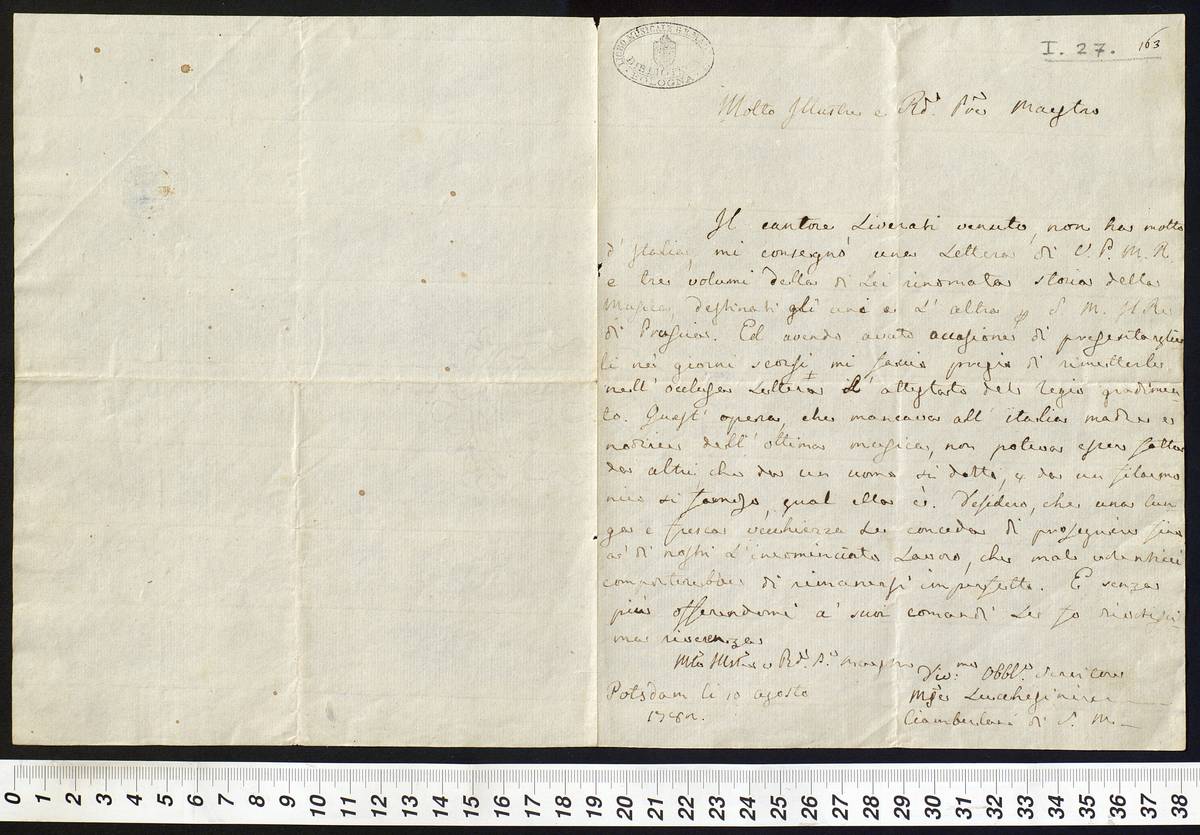 LICEO MUSICALE
BIBLIOTECA
BOLOGNA
I. 27. 163
Molto Illustre e Rdo. Pre Maestro
Il cantore Liverati venuto, non ha molto
d'Italia, mi consegnò una Lettera di V. P. M. R.
e tre volumi della di Lei rinomata storia della
Musica, destinati gli uni e l'altra S. M. Il Re
di Prussia. Ed avendo avuto occasione di presentar
li ne' giorni scorsi, mi faccio pregio di rimetterle
nell' occlusa Lettera L' attestato del regio gradimen-
to. Quest' opera, che mancava all' italia madre e
nodrice dell' ottima musica, non poteva esser fatta
da altri che da un uomo si dotto, e da un filarmo
nico si famoso, qual ella è. Desidero, che una lun
ga e fresca vecchiezza Le conceda di proseguire fino
a' di nostri L' incominciato Lavoro, che mal volentieri
comporterebbe di rimanersi imperfetto. E senza
più offerendomi a' suoi comandi Le fo
ma riverenza
Mto Illre e Rdo. Pe Maestro
Divmo. Obblo. Servitore
Potsdam li 10 agosto
Mse Lucchesini
178
Ciamberlano di S. M.
0 1 2 3 4 5 6 7 8 9 10 11 12 13 14 15 16 17 18 19 20 21 22 23 24 25 26 27 28 29 30 31 32 33 34 35 36 37 38